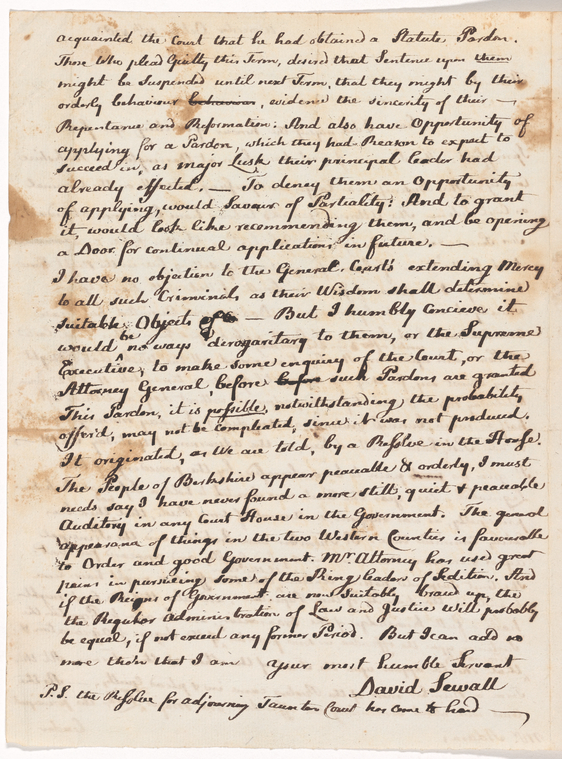 acquainted the Court that he had obtained a Statute Pardon.
Those who plead Guilty this Term, desired that Sentence upon them
might be suspended until next Term, that they might by their
orderly behaviour behaviour, evidence the sincerity of their —
Repentance and Reformation: And also have Opportunity of
applying for a Pardon, which they had Reason to expect to
succeed in, as major Lusk their principal Leader had
already effected. — To deney them an Opportunity
of applying, would Savour of Partiality: And to grant
it, would look like recommending them, and be opening
a Door for continual applications in future. —
I have no objection to the General Court's extending Mercy
to all such Criminals as their Wisdom shall determine
suitable Objects of — But I humbly concieve it
would be no ways derogatory to them, or the Supreme
Executive, to make some enquiry of the Court, or the
Attorney General, before before such Pardons are granted
This Pardon, it is possible, notwithstanding the probability
offer'd, may not be compleated, since it was not produced.
It originated, as we are told, by a Resolve in the House.
The People of Berkshire appear peaceable & orderly, I must
needs say I have never found a more still, quiet & peaceable
Auditory in any Court House in the Government. The general
appearance of things in the two Western Counties is favourable
to Order and good Government. Mr. Attorney has used great
pains in pursueing some of the Ring leaders of Sedition. And
if the Reigns of Government are now suitably braced up, the
the Regular Administration of Law and Justice will probably
be equal, if not exceed any former Period. But I can add no
more than that I am your most humble Servant
David Sewall
P.S. the Resolve for adjourning Taunton Court has come to hand —